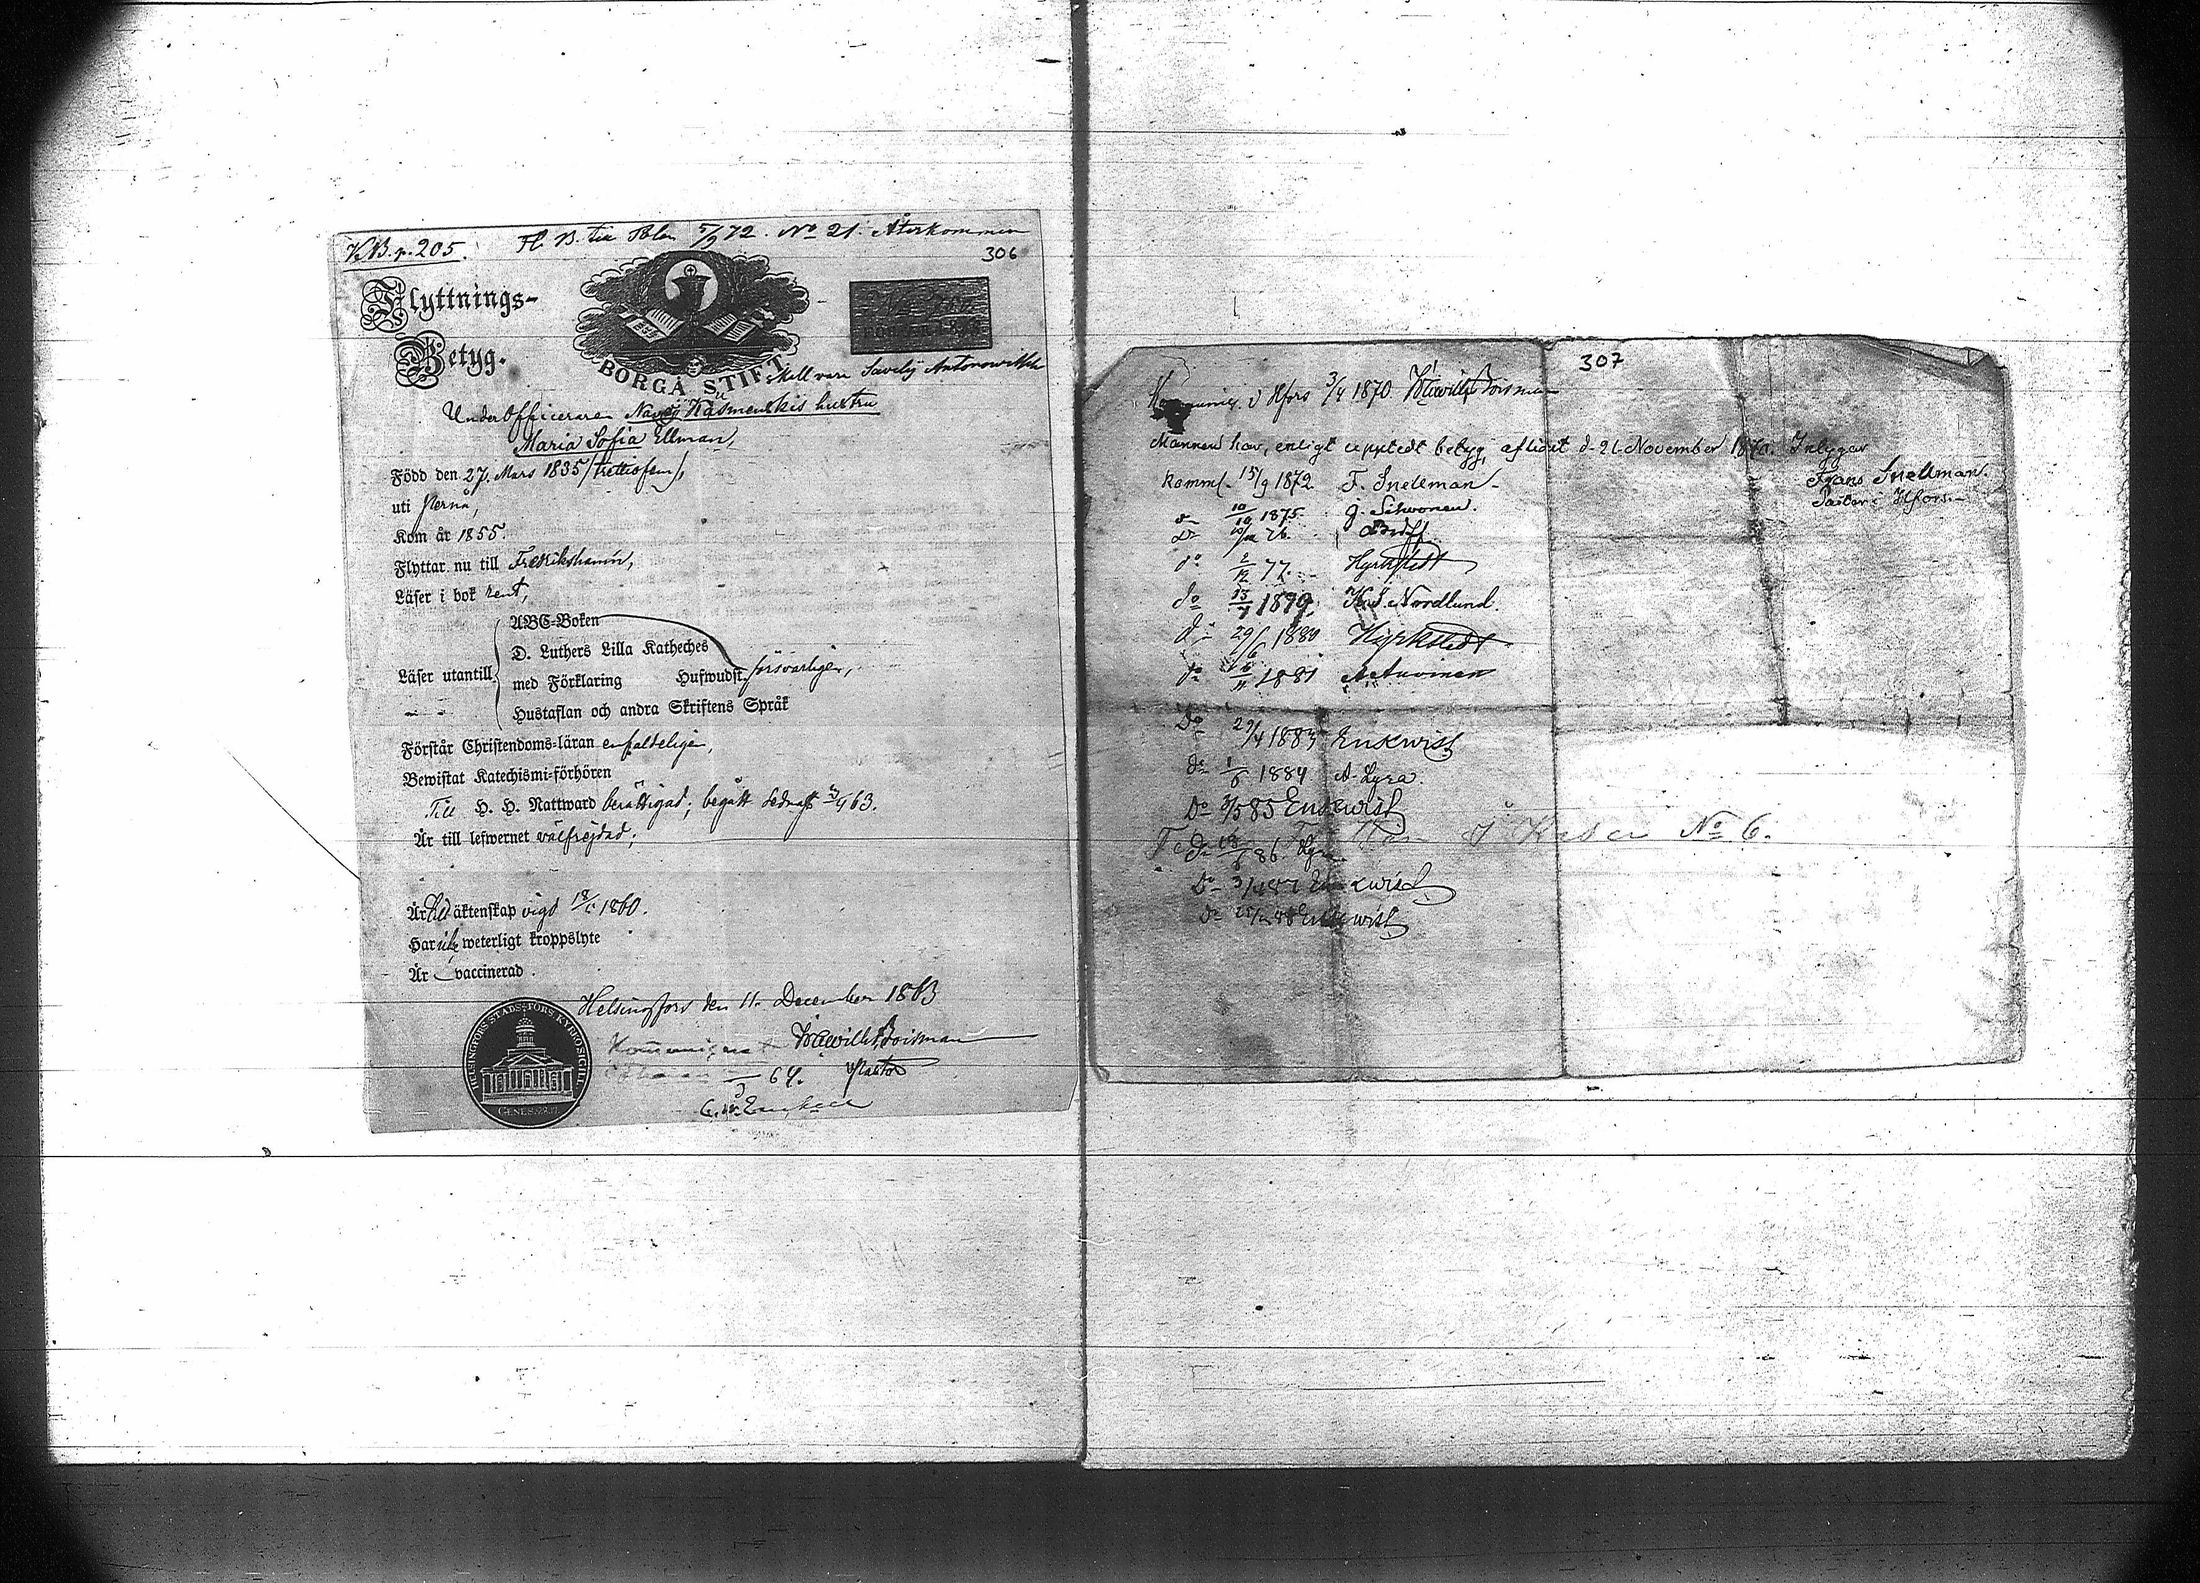 K.B.p. 205. Fl. B. till Åbo 5/9 72. No 21. Återkommen
306
Flyttnings-
Betyg.
BORGÅ STIFT
skall vara Savelij Antonowitsch
UnderOfficeraren Kusmenskis hustru
Maria Sofia Ellman,
Född den 27. Mars 1835 /trettiofem/,
uti Pernå,
Kom år 1855.
Flyttar nu till Fredrikshamn,
Läser i bok rent,
ABC-Boken
D. Luthers Lilla Katheches
Läser utantill med Förklaring Hufwudst. försvarligen,
Hustaflan och andra Skriftens Språk
Förstår Christendoms-läran enfaldeligen,
Bewistat Katechismi-förhören
Till H. H. Nattward berättigad; begått sednast 63.
Är till lefwernet välfrejdad;
Är till äktenskap vigd 1860.
Har icke weterligt kroppslyte
Är vaccinerad.
Helsingfors den 11. December 1863
HELSINGFORS STADS-FÖRS. KYRKOSIGILL
GENES. 28.17.
Boisman
64. Pastor
307
H:fors 3/4 1870 Boisman
Mannen har, enligt uppstedt betyg, aflidit d. 21 November 1870. Intygar
Frans Snellman.
Pastor i H:fors.
Komm. 15/9 1872 F. Snellman
do 10/10 1875 J. Sihvonen.
do 76.
do 2/12 77. Hyrkstedt
do 13/7 1879 K. J. Nordlund.
do 29/6 1880 Hyrkstedt
do 11 1881 A. Auvinen
Do 29/4 1883 Enqwist
do 1/6 1884 A. Lyra
Do 3/5 85 Enqwist
do 13/6 86. Lyra
No 6.
Do 3/4 87 Enqwist
do 88 Enqwist